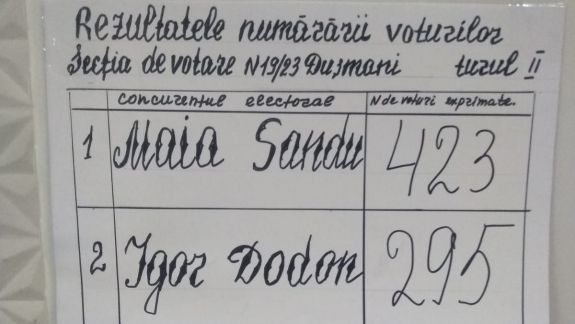 Rezultatele numărării voturilor
Secția de votare N19/23 Dușmani turul II
concurentul electoral N de voturi exprimate.
1 Maia Sandu 423
2 Igor Dodon 295